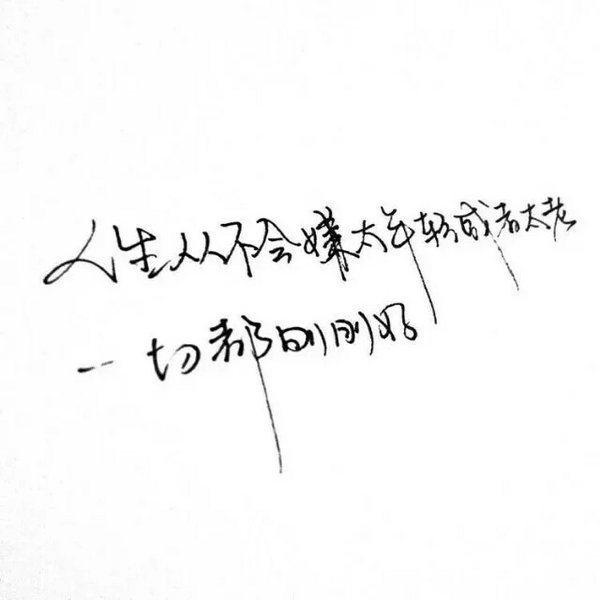 人生从不会嫌太年轻或者太老
一切都刚刚好